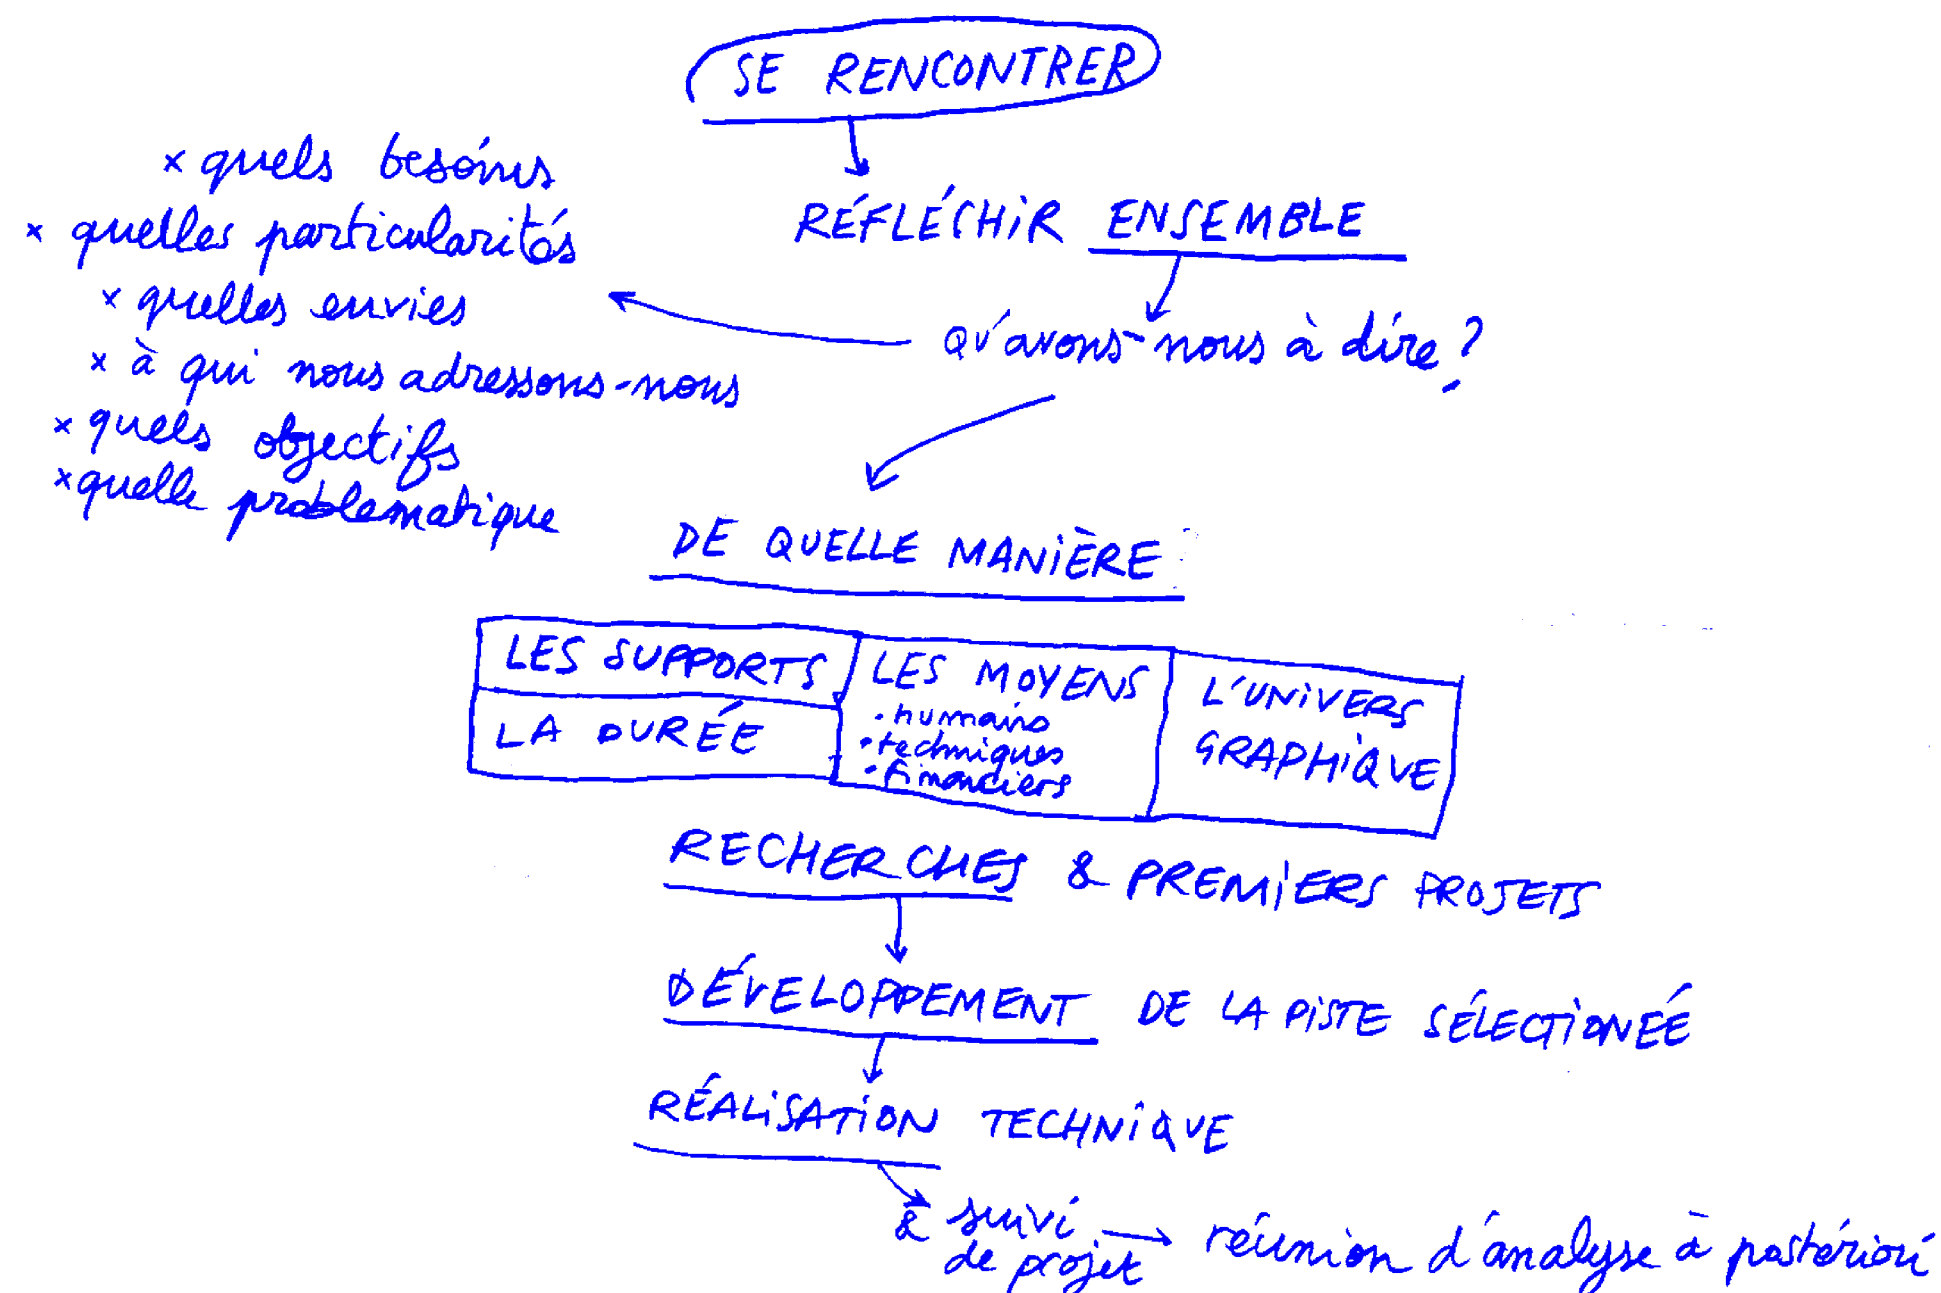 SE RENCONTRER
RÉFLÉCHIR ENSEMBLE
Qu'avons-nous à dire?
× quels besoins
× quelles particularités
× quelles envies
× à qui nous adressons-nous
× quels objectifs
× quelle problematique
DE QUELLE MANIÈRE
LES SUPPORTS
LA DURÉE
LES MOYENS
• humains
• techniques
• financiers
L'UNIVERS
GRAPHIQUE
RECHERCHES & PREMIERS PROJETS
DÉVELOPPEMENT DE LA PISTE SÉLECTIONÉÉ
RÉALISATION TECHNIQUE
& suivi
de projet
réunion d'analyse à postériori